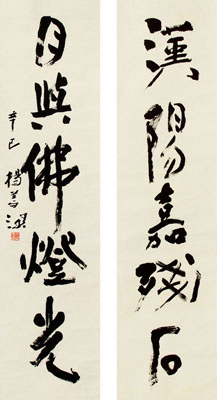 漢陽嘉殘石
月與佛燈光
辛巳 楊善深